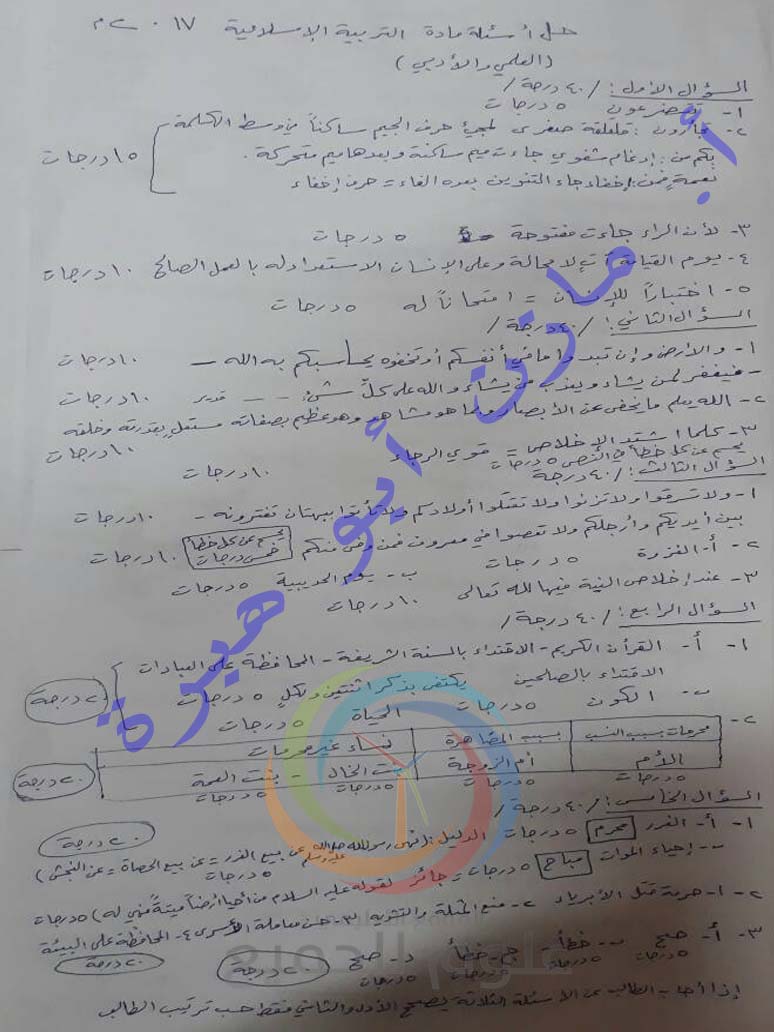 حل أسئلة مادة التربية الإسلامية ٢٠١٧ م
(العلمي والأدبي)
السؤال الأول: /٤٠ درجة/
١- تتضرعون ٥ درجات
٢- تجأرون: قلقلة صغرى لمجيء حرف الجيم ساكناً في وسط الكلمة
بكم من: إدغام شفوي جاءت ميم ساكنة وبعدها ميم متحركة. ١٥ درجات
نعمةٍ فمن: إخفاء جاء التنوين بعده الفاء = حرف إخفاء
٣- لأن الراء جاءت مفتوحة ٥ درجات
٤- يوم القيامة آتٍ لا محالة وعلى الإنسان الاستعداد له بالعمل الصالح ١٠ درجات
٥- اختباراً للإنسان = امتحاناً له ٥ درجات
السؤال الثاني: /٤٠ درجة/
١- والأرض وإن تبدوا ما في أنفسكم أو تخفوه يحاسبكم به الله - ١٠ درجات
- فيغفر لمن يشاء ويعذب من يشاء والله على كل شيء - - قدير ١٠ درجات
٢- الله يعلم ما تخفى عن الأبصار وبما هو مشاهد وهو عظيم بصفاته مستقل بقدرته وخلقه
١٠ درجات
٣- كلما اشتد الإخلاص = قوي الرجاء ١٠ درجات
يحسم عن كل خطأ في النص ٥ درجات
السؤال الثالث: /٤٠ درجة
١- ولا تسرقوا ولا تزنوا ولا تقتلوا أولادكم ولا تأتوا ببهتان تفترونه - ١٠ درجات
بين أيديكم وأرجلكم ولا تعصوا في معروف فمن وفى منكم يحسم عن كل خطأ خمس درجات ١٠ درجات
٢- أ- الغزوة ٥ درجات ب- يوم الحديبية ٥ درجات
٣- عند إخلاص النية فيها لله تعالى ١٠ درجات
السؤال الرابع: /٤٠ درجة/
١- أ- القرآن الكريم - الاقتداء بالسنة الشريفة - المحافظة على العبادات
الاقتداء بالصالحين يكتفى بذكر اثنتين ولكل ٥ درجات ٢٠ درجة
ب- الكون ٥ درجات الحياة ٥ درجات
٢- محرمات بسبب النسب بسبب المصاهرة نساء غير محرمات
الأم أم الزوجة بنت الخال - بنت العمة ٢٠ درجة
٥ درجات ٥ درجات ٥ درجات ٥ درجات
السؤال الخامس: /٤٠ درجة/
٢٠ درجة
١- أ- الغرر محرم ٥ درجات الدليل: (نهى رسول الله صلى الله عليه وسلم عن بيع الغرر = عن بيع الحصاة = عن النجش)
٥ درجات
ب- إحياء الموات مباح ٥ درجات = جائز لقوله عليه السلام من أحيا أرضاً ميتةً فهي له) ٥ درجات
٢- ١- حرمة قتل الأبرياء ٢- منع المثلة والتشويه ٣- حسن معاملة الأسرى ٤- المحافظة على البيئة
٢٠ درجة
٣- أ- صح ب- خطأ - ج- خطأ د- صح ٢٠ درجة
٥ درجات ٥ درجات ٥ درجات ٥ درجات
إذا أجاب الطالب عن الأسئلة الثلاثة يصحح الأول والثاني فقط حسب ترتيب الطالب
أ. مازن أبو هبرة
علوم للجميع